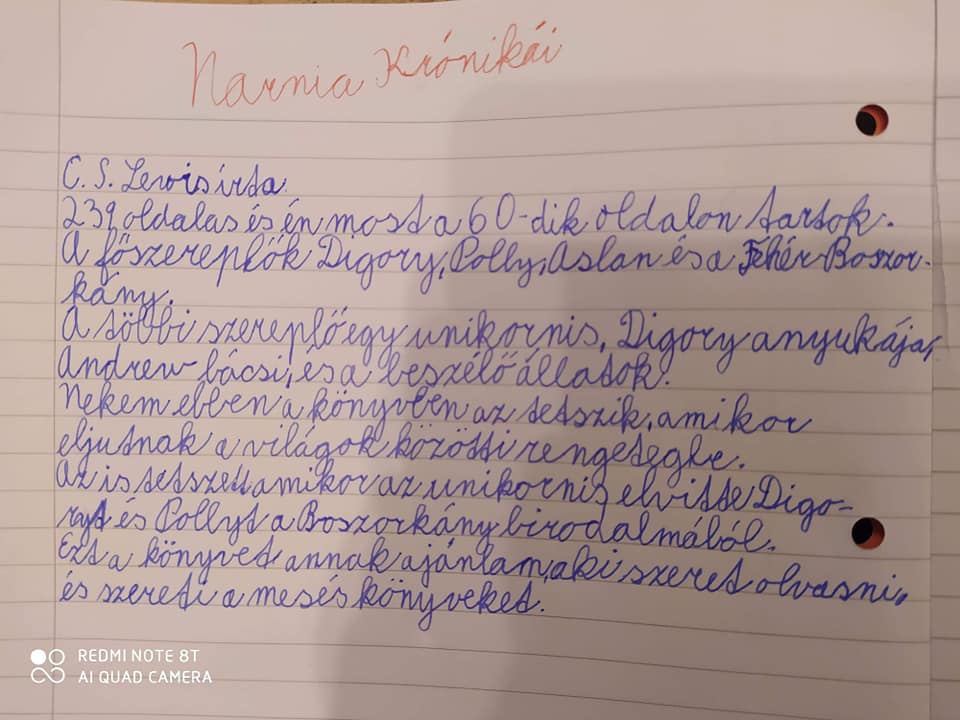 Narnia Krónikái
C. S. Lewis írta.
239 oldalas és én most a 60-dik oldalon tartok.
A főszereplők Digory, Polly, Aslan és a Fehér Boszor-
kány.
A többi szereplő egy unikornis, Digory anyukája,
Andrew bácsi, és a beszélő állatok.
Nekem ebben a könyvben az tetszik, amikor
eljutnak a világok közötti rengetegbe.
Az is tetszett amikor az unikornis elvitte Digo-
ryt és Pollyt a Boszorkány birodalmából.
Ezt a könyvet annak ajánlam, aki szeret olvasni,
és szereti a mesés könyveket.
REDMI NOTE 8T
AI QUAD CAMERA